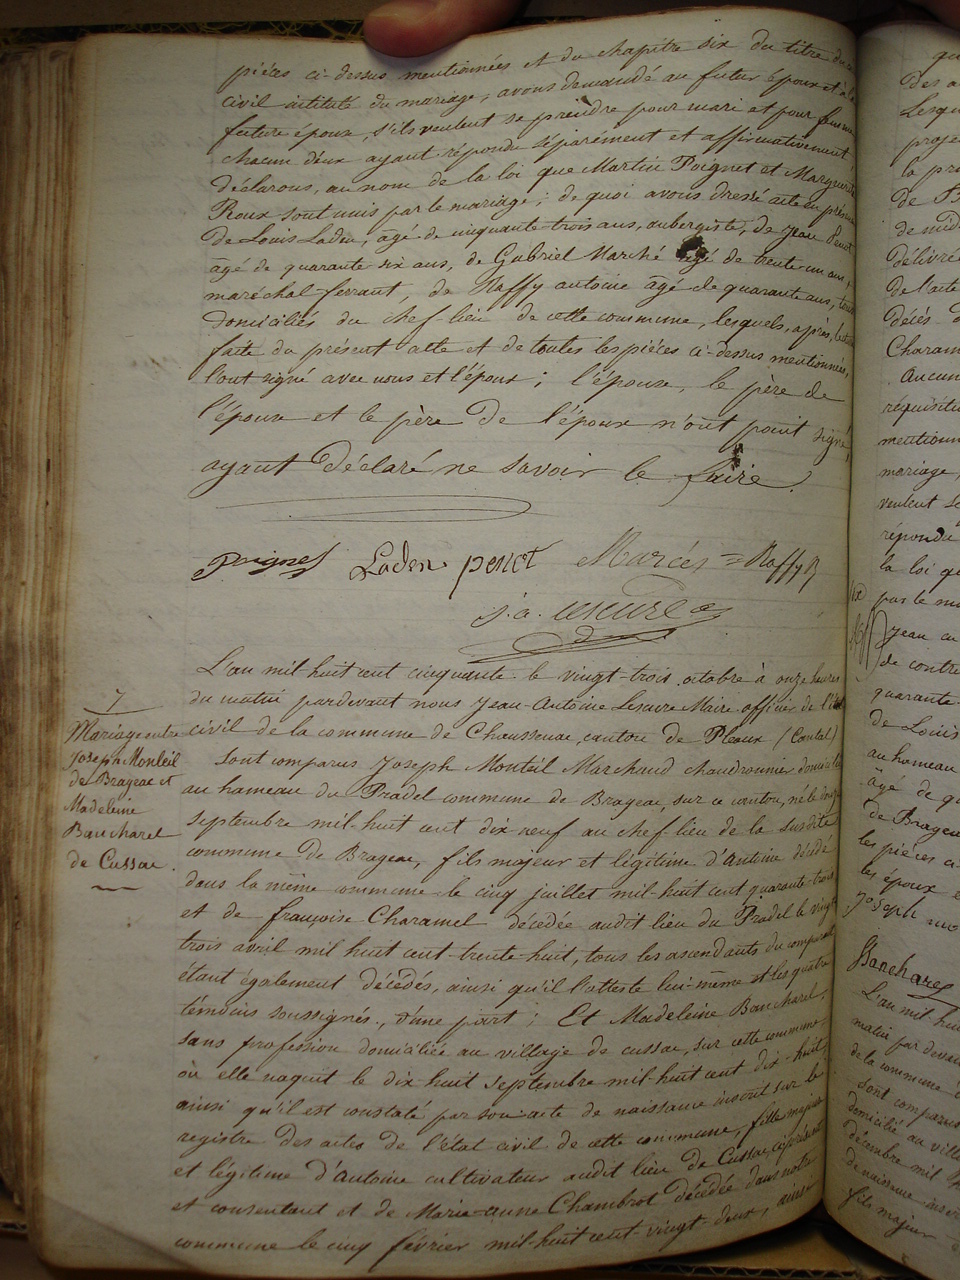 pièces ci-dessus mentionnées et du chapitre six du titre du
civil intitulé du mariage, avons demandé au futur époux et à la
future épouse, s'ils veulent se prendre pour mari et pour femme
chacun d'eux ayant répondu séparément et affirmativement,
déclarons, au nom de la loi que Martin Poignet et Marguerite
Roux sont unis par le mariage; de quoi avons dressé acte en présence
de Louis Laden, âgé de cinquante-trois ans, aubergiste, de Jean Penot
âgé de quarante six ans, de Gabriel Marché âgé de trente-un ans,
maréchal-ferrant, de Raffy antoine âgé de quarante ans, tous
domiciliés du chef-lieu de cette commune, lesquels, après lecture
faite du présent acte et de toutes les pièces ci-dessus mentionnées,
l'ont signé avec nous et l'époux; l'épouse, le père de
l'époux et le père de l'épouse n'ont point signé,
ayant déclaré ne savoir le faire.
Poignet Laden penot Marcés = Raffy
j. a. Lescure
L'an mil-huit cent cinquante le vingt-trois octobre à onze heures
du matin pardevant nous Jean-Antoine Lescure Maire officier de l'état
civil de la commune de Chaussenac, canton de Pleaux (Cantal)
Sont comparus Joseph Monteil Marchand chaudronnier domicilié
au hameau du Pradel commune de Brageac, sur ce canton, né le
septembre mil-huit cent dix neuf au chef-lieu de la susdite
commune de Brageac, fils majeur et légitime d'Antoine décédé
dans la même commune le cinq juillet mil-huit cent quarante-trois
et de françoise Charamel décédée audit lieu du Pradel le vingt
trois avril mil huit cent-trente-huit, tous les ascendants du comparant
étant également décédés, ainsi qu'il l'atteste lui-même et les quatre
témoins soussignés, d'une part; Et Madeleine Bancharel,
sans profession domiciliée au village de cussac, sur cette commune
où elle naquit le dix huit septembre mil-huit cent dix-huit,
ainsi qu'il est constaté par son acte de naissance inscrit sur le
registre des actes de l'état civil de cette commune, fille majeure
et légitime d'Antoine cultivateur audit lieu de Cussac, ci présent
et consentant et de Marie-anne Chambrot décédée dans notre
commune le cinq février mil-huit cent-vingt-deux, ainsi
7
Mariage entre
Joseph Monteil
de Brageac et
Madeleine
Bancharel
de Cussac.
des a
projet
la pr
de B
de mid
délivré
de l'acte
décès d
Charam
Aucun
réquisiti
mentionn
mariage,
veulent se
répondu
la loi qu
par le ma
Jean
de contre
quarante-
de Louis
au hameau
âgé de qu
de Brageac
les pièces ci
les époux e
joseph mo
Bancharel
L'an mil-hui
matin par devan
de la commune
Sont comparus
domicilié au villa
décembre mil
de naissance inscr
fils majeur